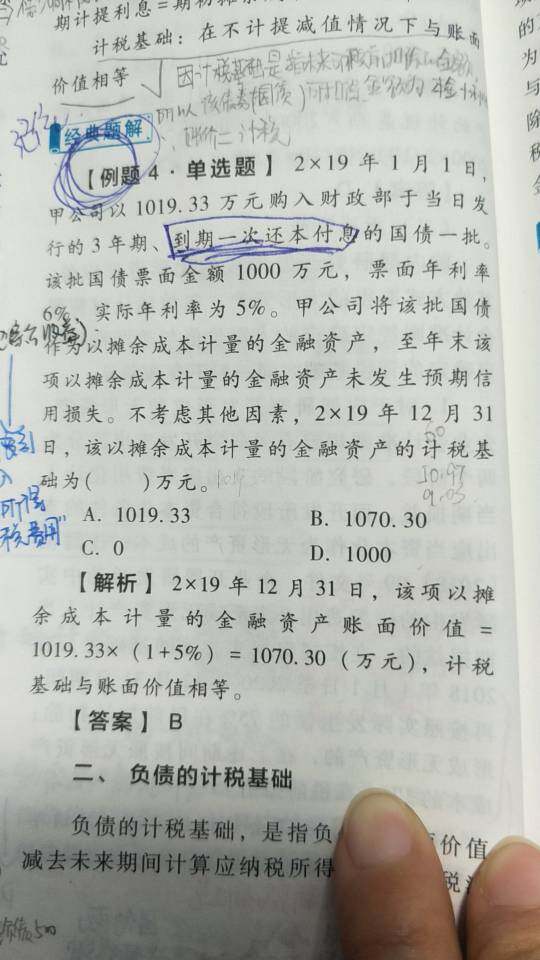 期计提利息=期初摊余
计税基础：在不计提减值情况下与账面
价值相等
因计税基础是指未来
所以该债
计税
记住
经典题解
【例题4·单选题】 2×19年1月1日，
甲公司以1019.33万元购入财政部于当日发
行的3年期、到期一次还本付息的国债一批。
该批国债票面金额1000万元，票面年利率
6%，实际年利率为5%。甲公司将该批国债
作为以摊余成本计量的金融资产，至年末该
项以摊余成本计量的金融资产未发生预期信
用损失。不考虑其他因素，2×19年12月31
日，该以摊余成本计量的金融资产的计税基
础为(　　)万元。
60
10.97
9.03
所得
税费用"
A. 1019.33 B. 1070.30
C. 0 D. 1000
【解析】 2×19年12月31日，该项以摊
余成本计量的金融资产账面价值=
1019.33×(1+5%)=1070.30(万元)，计税
基础与账面价值相等。
【答案】 B
二、负债的计税基础
负债的计税基础，是指负 价值
减去未来期间计算应纳税所得 税